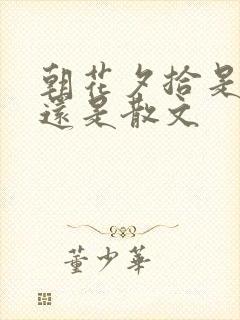 朝花夕拾是
還是散文
董少華